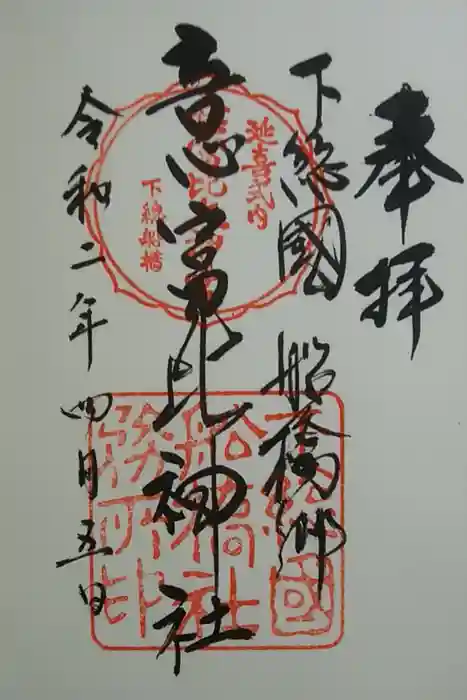 奉拝
下総國 船橋郷
意富比神社
令和二年 四月五日
延喜式内
意富比神社
下総船橋